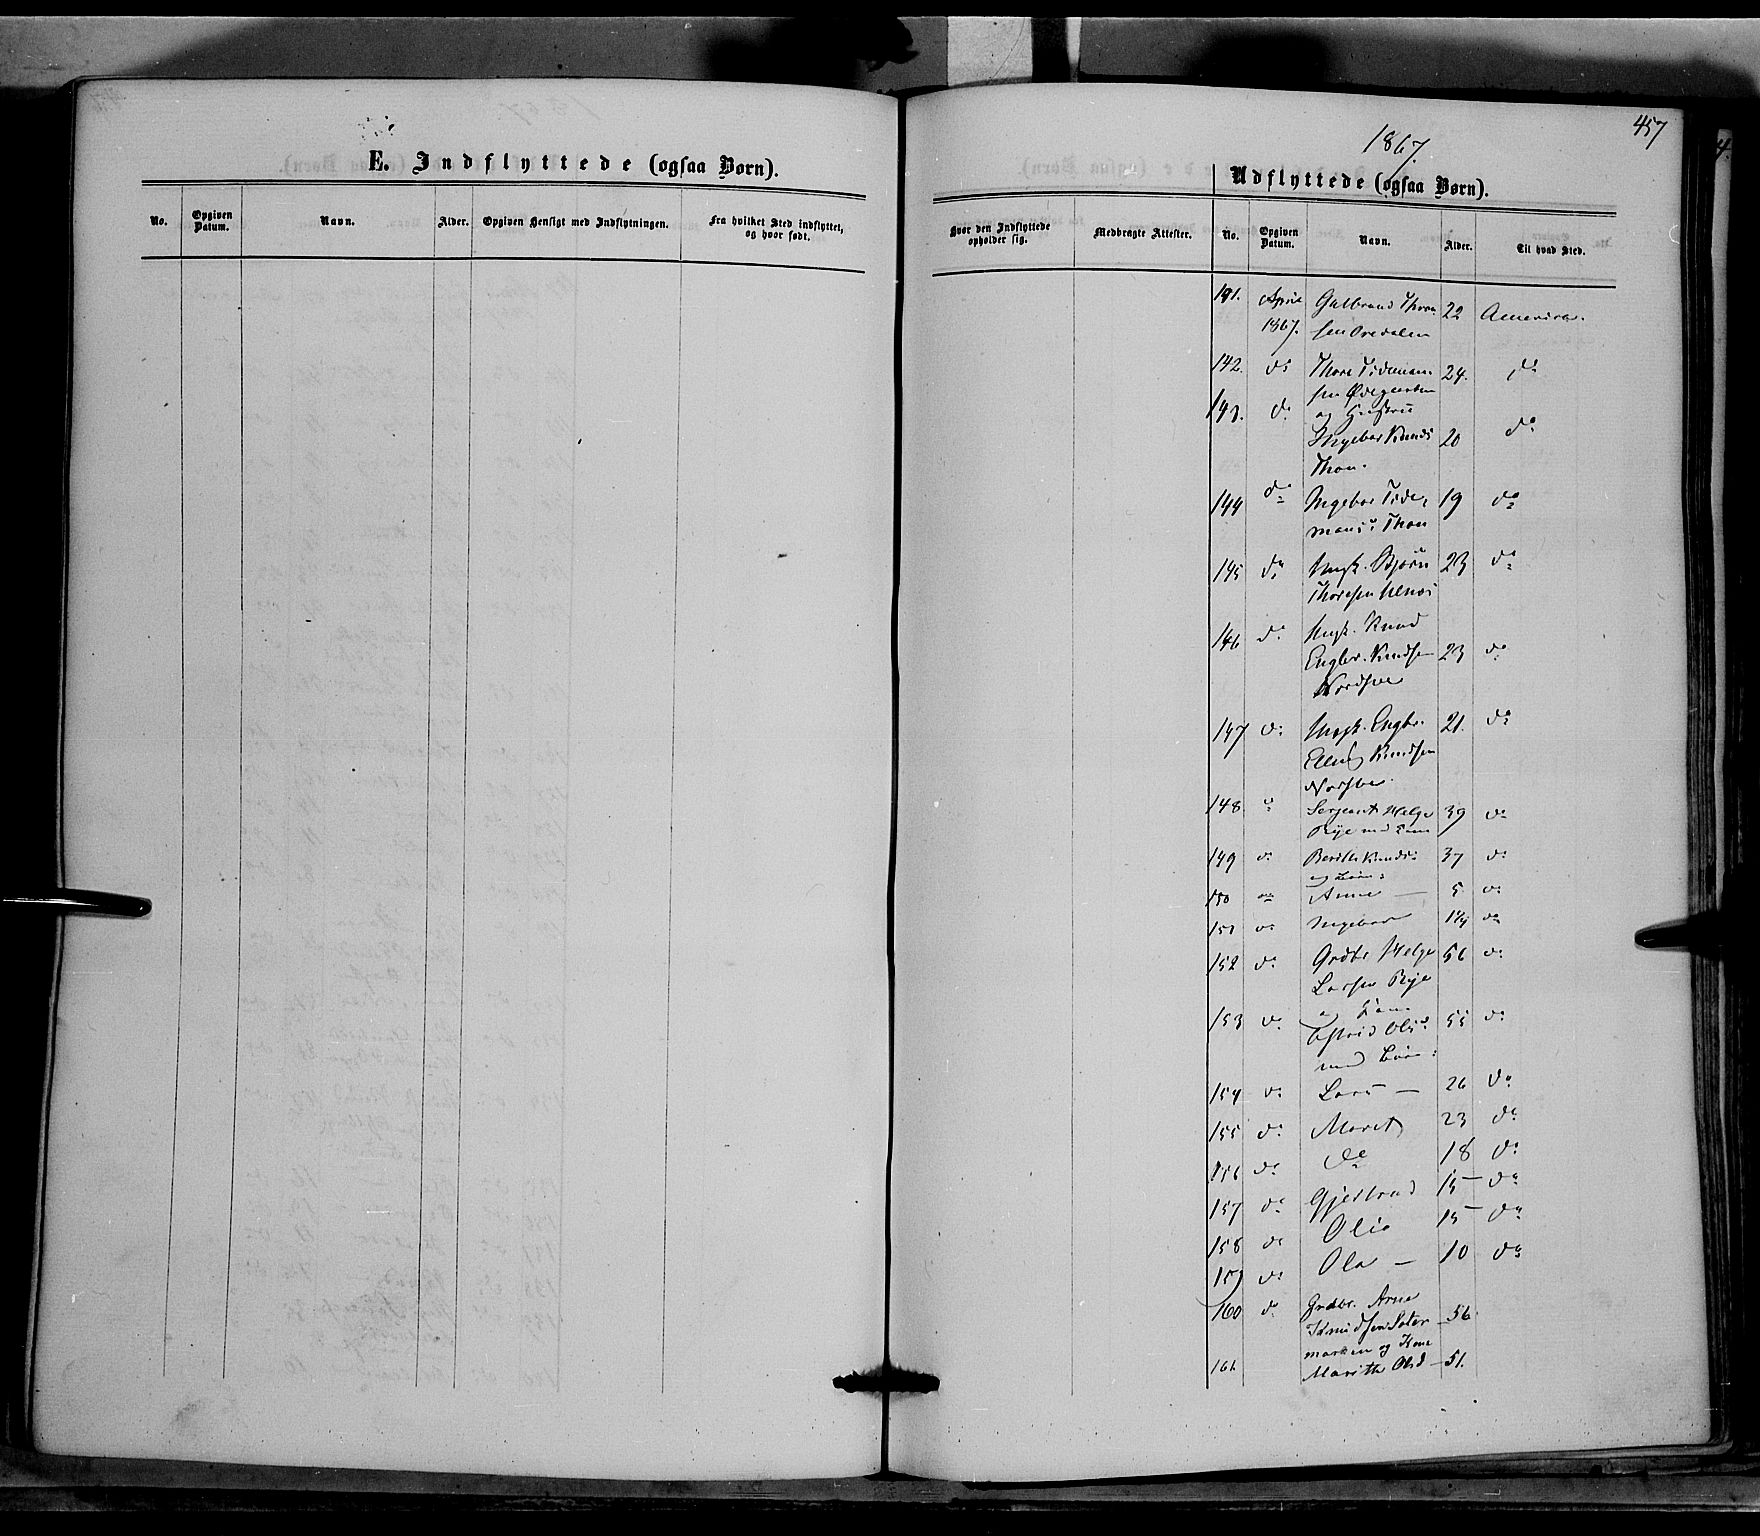 457
1867.
E. Indflyttede (ogsaa Børn).
No. Opgiven Datum. Navn. Alder. Opgiven Hensigt med Indflytningen. Fra hvilket Sted indflyttet, og hvor født.
Udflyttede (ogsaa Børn).
Hvor den Indflyttede opholder sig. Medbragte Attester. No. Opgiven Datum. Navn. Alder. Til hvad Sted.
141. April Gulbrand Thor- 22 America.
1867. sen
142. do Thore Tideman- 24. do
sen Ødegaarden
143. do og Hustru
Ingebor Knuds 20 do
Thon.
144 do Ingebor Tide- 19 do
mansd. Thon
145 do Ungk. Bjørn 23 do
Thoresen
146 do Ungk. Knud
Engbr. Knudsen 23 do
Nordsve
147 do Ungk. Engbr. 21. do
Elling Knudsen
Nordsve
148. do Sergeant Helge 39 do
Rye med Kone
149 do Berith Knudsd. 37 do
og Børn:
150 do Anne — 5 do
151 do Ingebor do
152 do Grdbr. Helge 56 do
Larsen Rye
og Kone
153 do Astrid Olsd. 55 do
med Børn:
154 do Lars — 26 do
155 do Marit 23 do
156 do do 18 do
157 do Gjertrud 15 do
158 do Olia 15 do
159 do Ola — 10 do
160 do Grdbr. Arne
Knudsen Sæter- 56
marken og Kone
161. Marithe Olsd — 51.